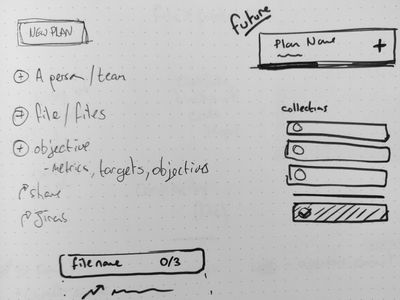 NEW PLAN
A person/team
file/files
objective
- metrics, targets, objectives
share
future
Plan Name
collections
filename 0/3